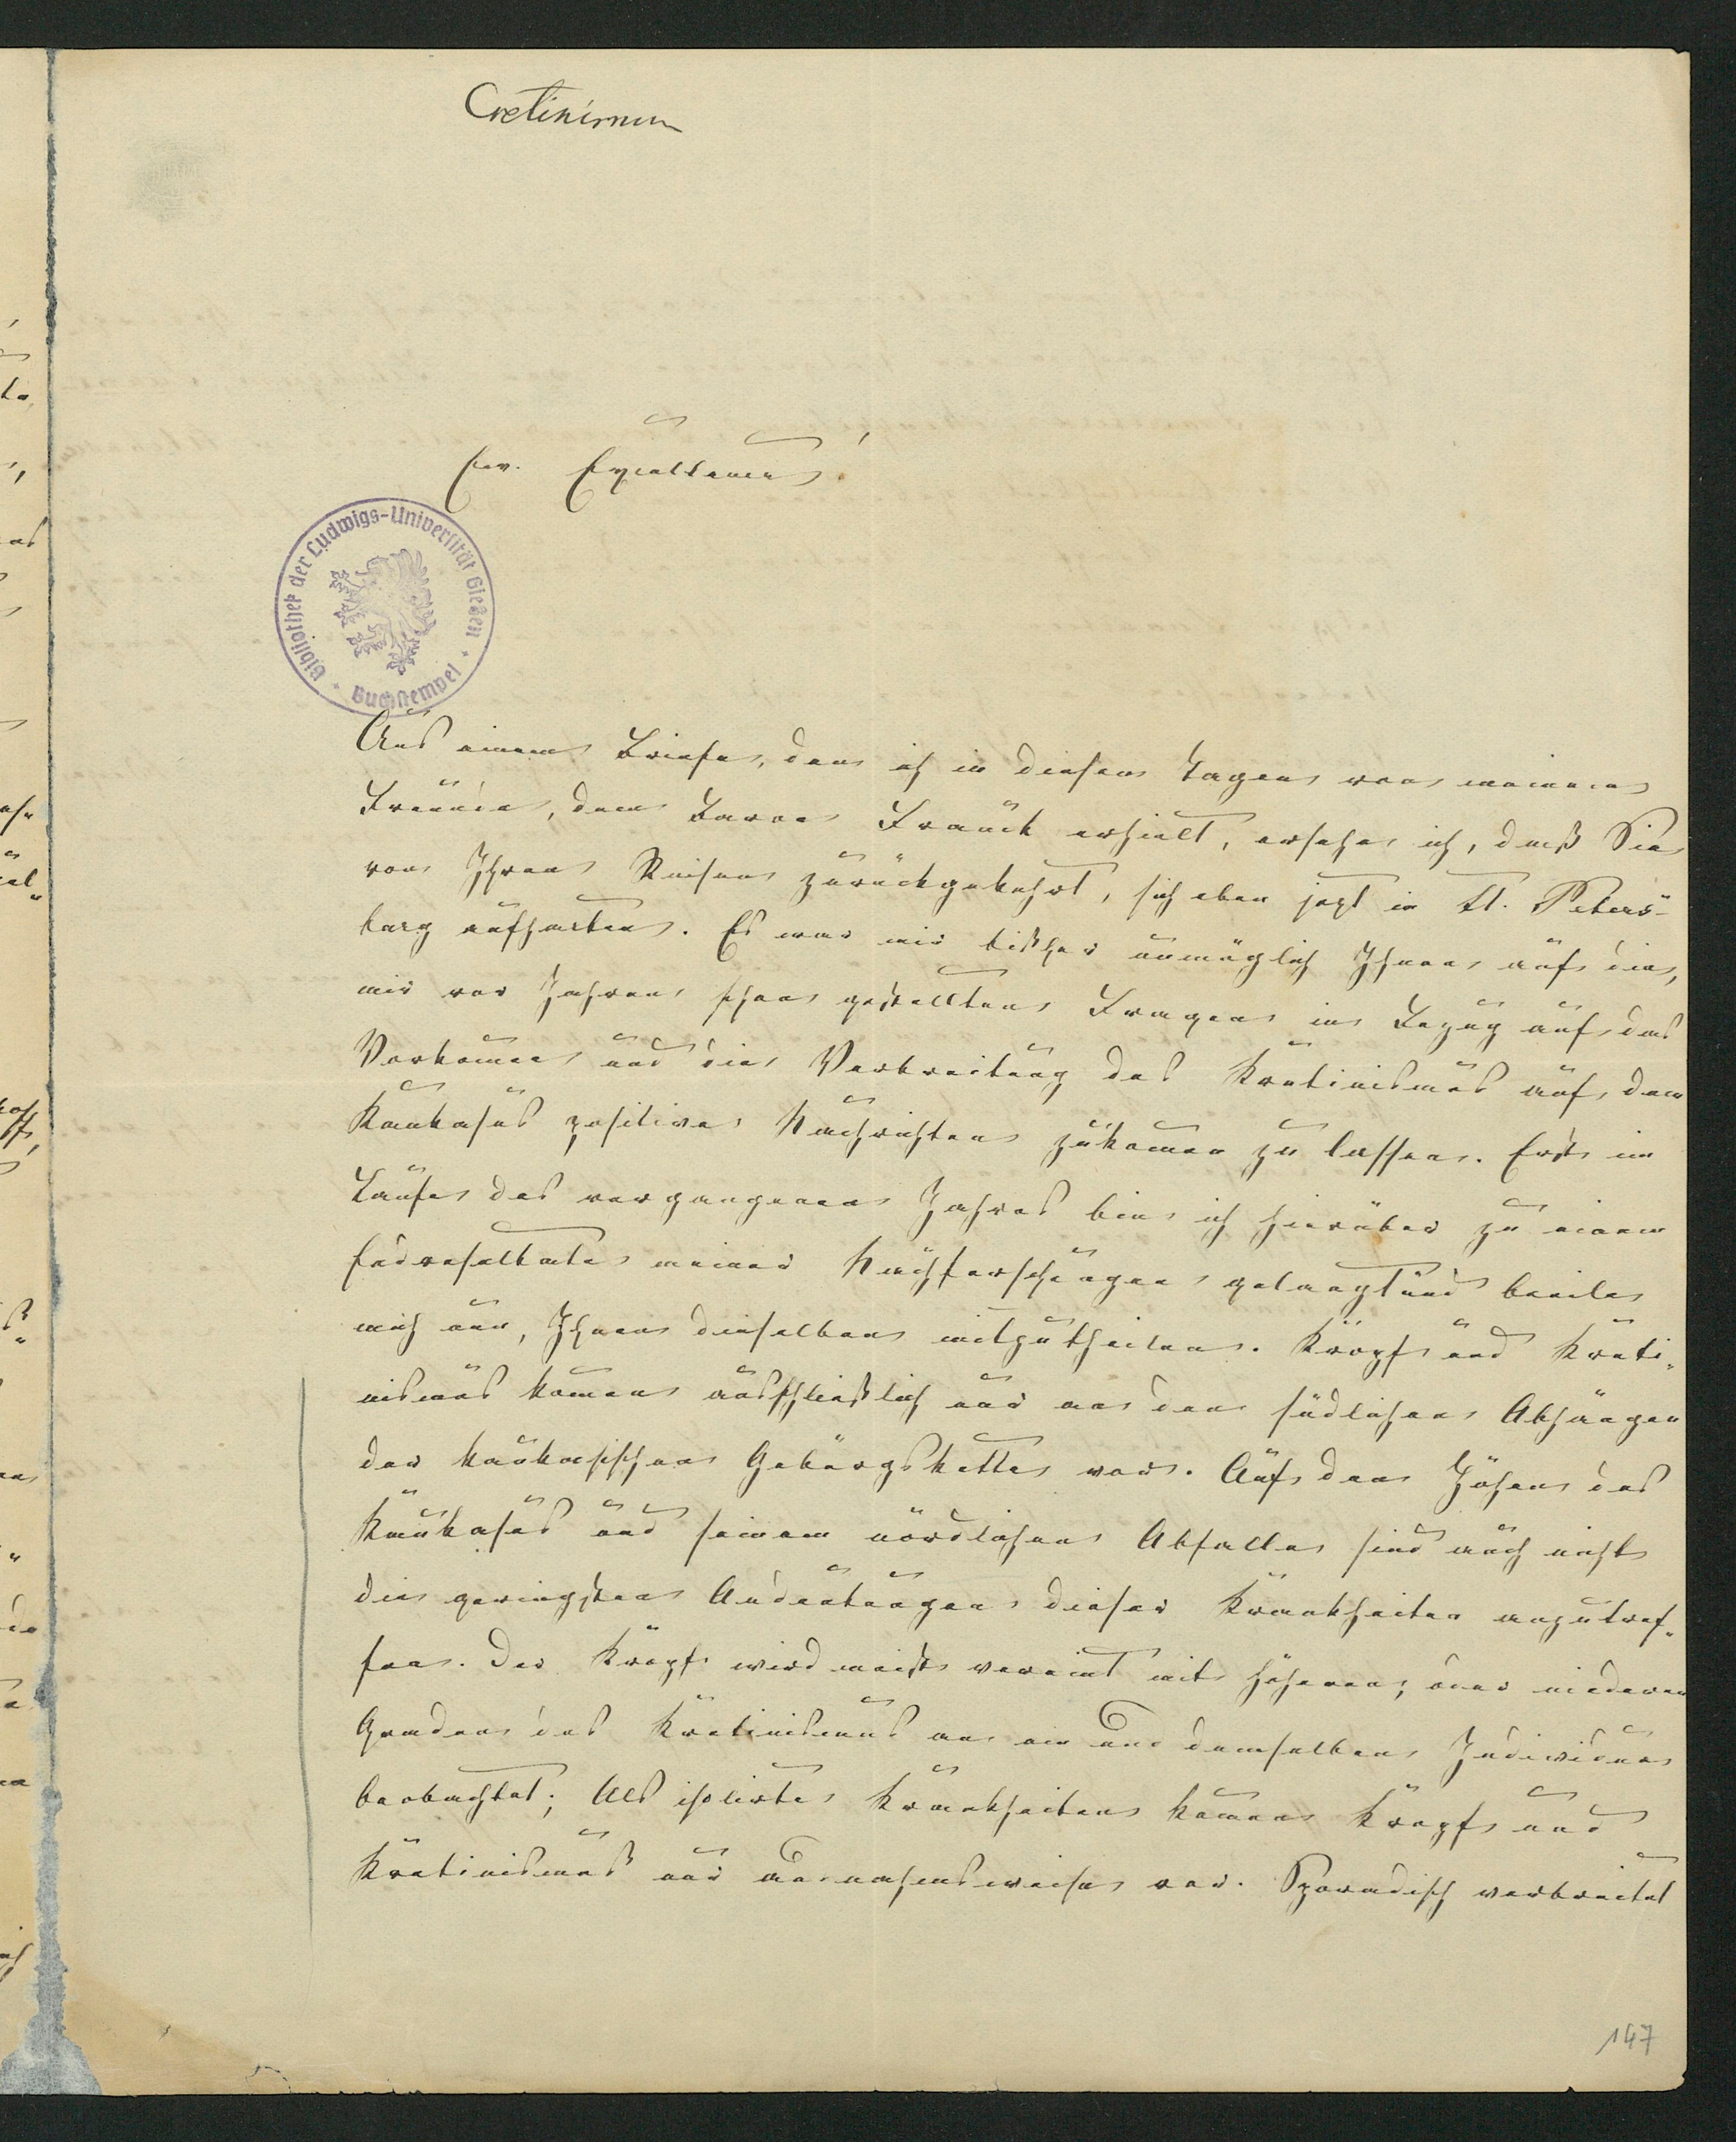 Cretinismus
Ew. Excellence!
Bibliothek der Ludwigs-Universität Gießen
Buchstempel
Aus einem Briefe, den ich in diesen Tagen von meinem
Freunde, dem Baron Franck erhielt, ersehe ich, daß Sie
von Ihren Reisen zurückgekehrt, sich eben jezt in St. Peters-
burg aufhalten. Es war mir bisher unmöglich Ihnen auf die,
mir vor Jahren schon gestellten Fragen in Bezug auf das
Vorkomen und die Verbreitung des Kretinismus auf dem
Kaukasus positive Nachrichten zukomen zu lassen. Erst im
Laufe des vergangenen Jahres bin ich hierüber zu einem
Endresultate meiner Nachforschungen gelangt und beeile
mich nun, Ihnen dieselben mitzutheilen. Kropf und Kreti-
nismus komen ausschließlich nur an den südlichen Abhängen
der kaukasischen Gebirgskette vor. Auf den Höhen des
Kaukasus und seinem nördlichen Abfalle sind auch nicht
die geringsten Andeutungen dieser Krankheiten anzutref-
fen. Der Kropf wird meist vereint mit höheren, oder niederen
Graden des Kretinismus an ein und demselben Individuen
beobachtet; Als isolirte Krankheiten komen Kropf und
Kretinismus nur ausnahmsweise vor. Sporadisch verbreitet
147